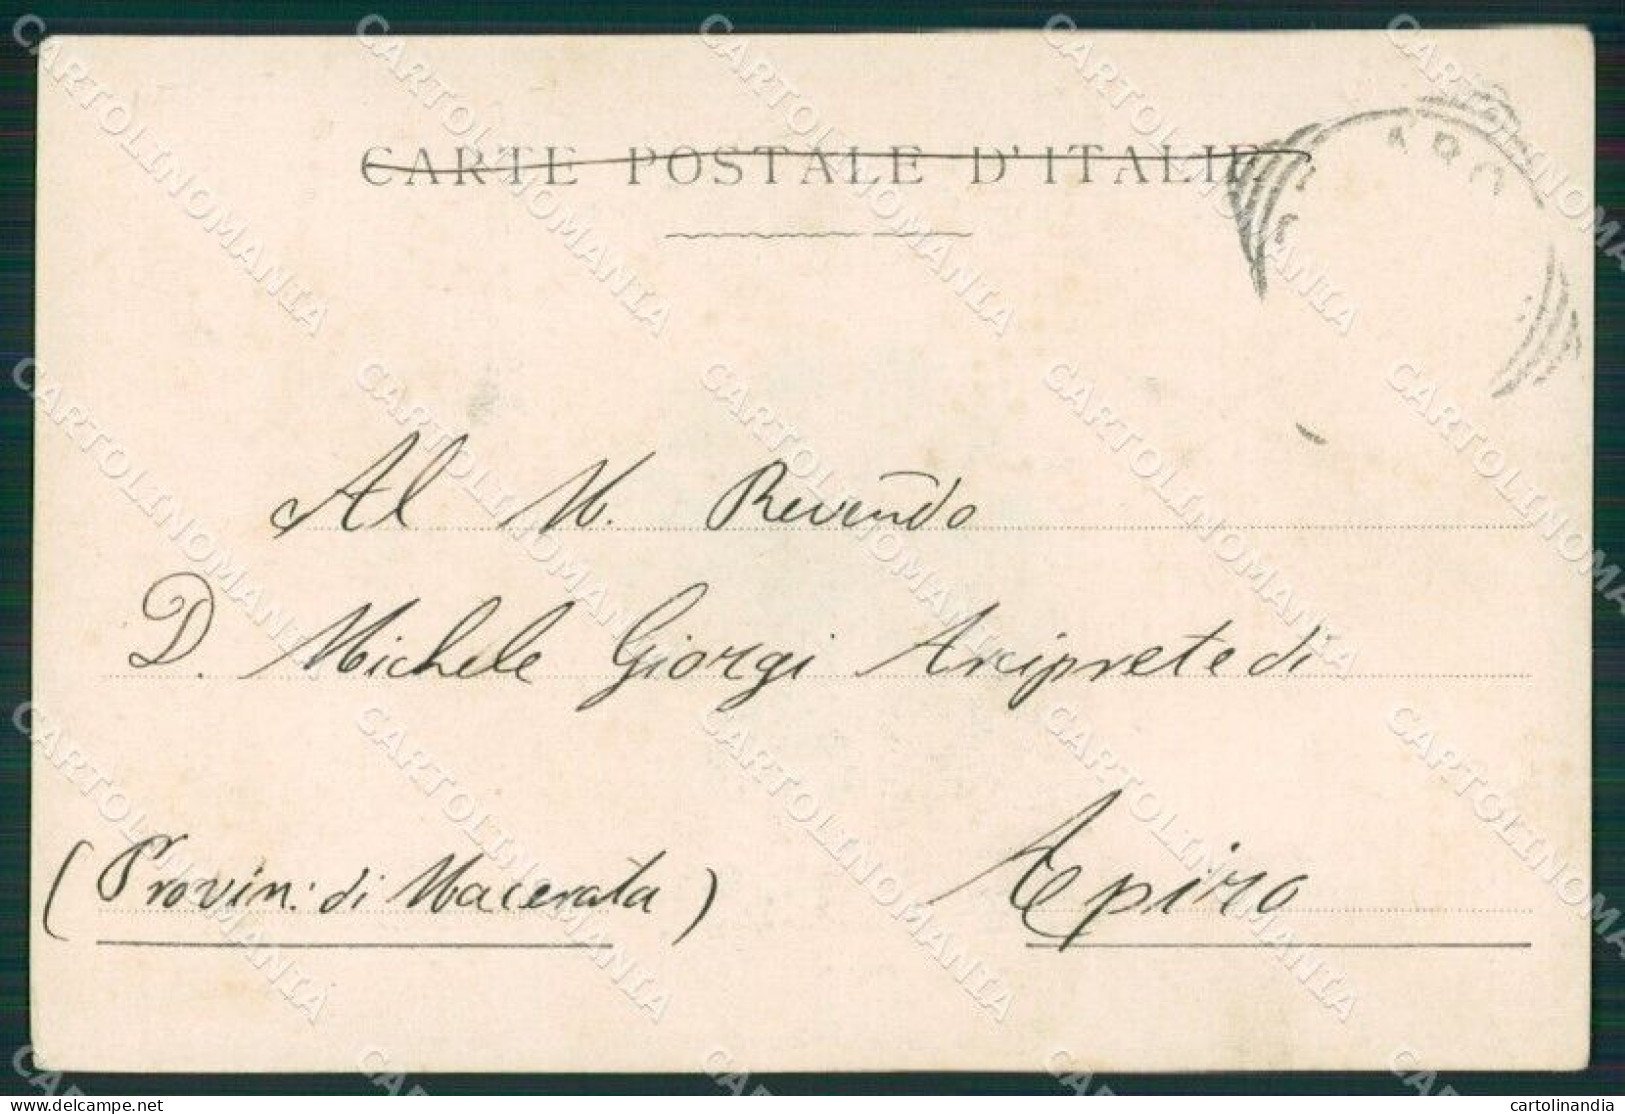 CARTE POSTALE D'ITALIE
Al M. Revendo
D. Michele Giorgi Arciprete di
Apiro
(Provin: di Macerata)
CARTOLINOMANIA
cartolinandia